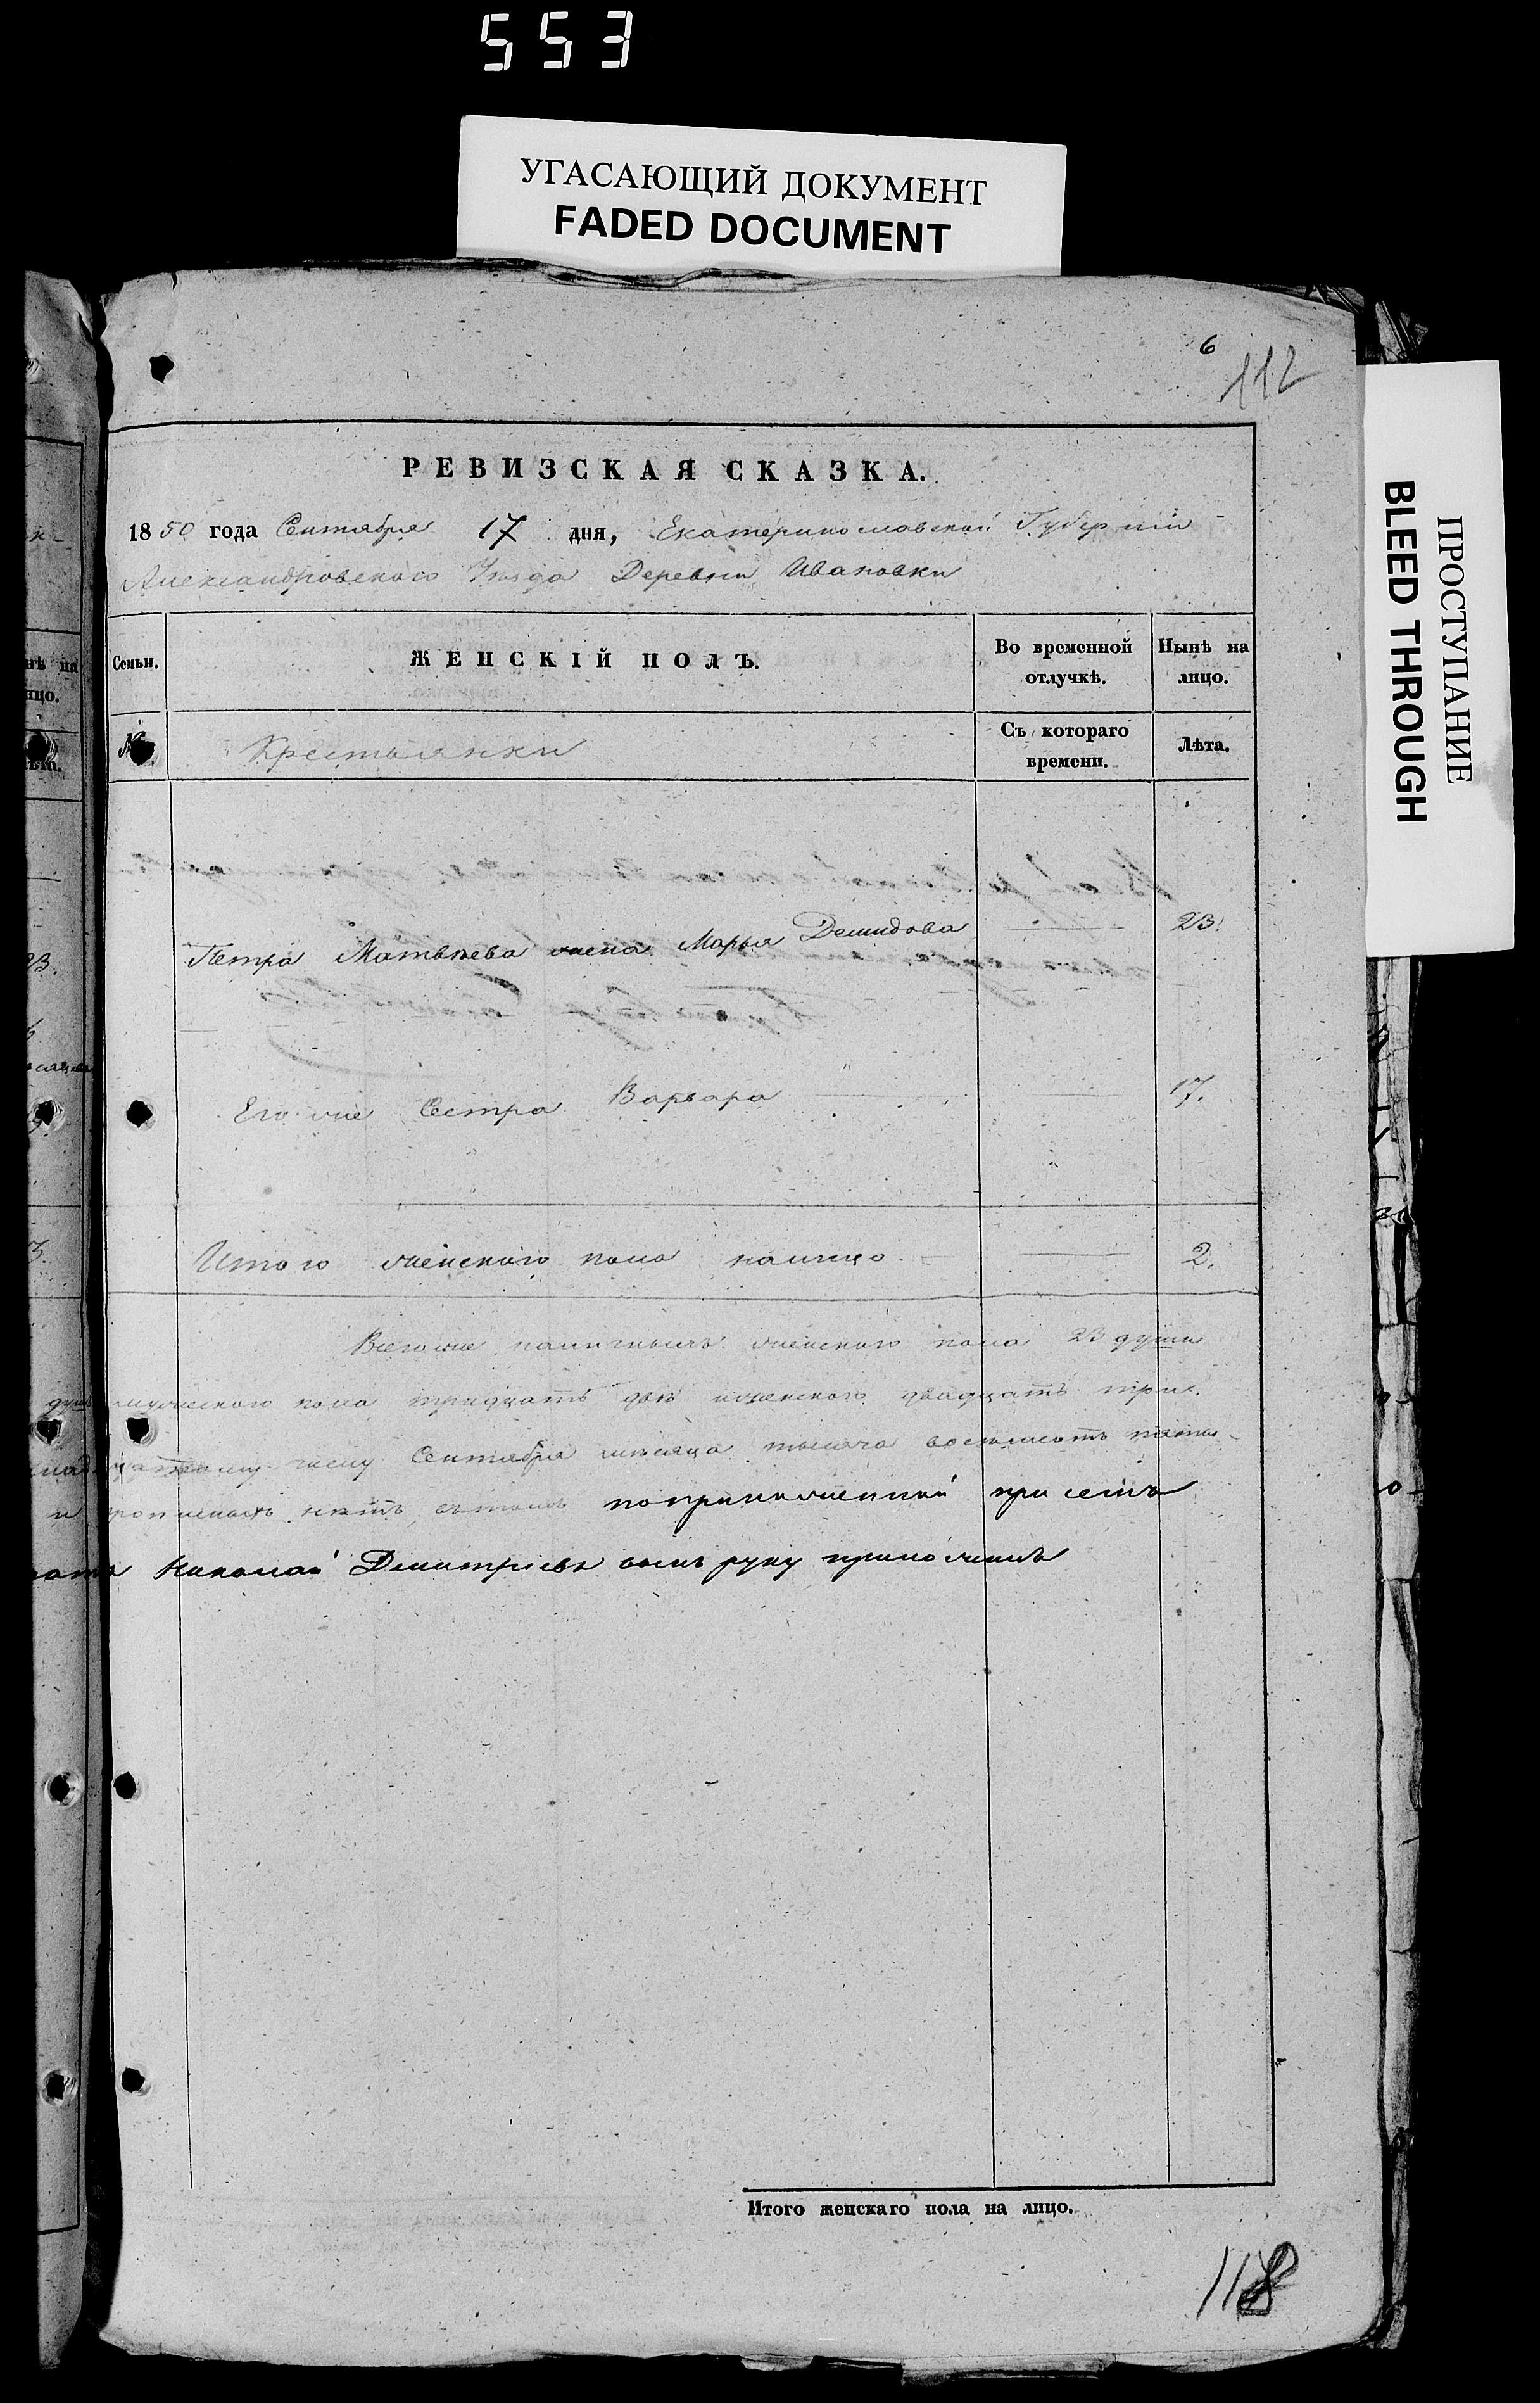 553
УГАСАЮЩИЙ ДОКУМЕНТ
FADED DOCUMENT
6
112
РЕВИЗСКАЯ СКАЗКА.
1850 года Сентября 17 дня, Екатеринославской Губернии
Александровского Уезда Деревни Ивановки
Семьи. ЖЕНСКІЙ ПОЛЪ. Во временной отлучкѣ. Нынѣ на лицо.
№ Крестьянки Съ котораго времени. Лѣта.
Петра Матвѣева жена Марья Демидова 23.
Его же Сестра Варвара 17.
Итого женского пола налицо 2.
Всего же наличныхъ женского пола 23 души
мужеского пола тридцать две женского двадцать три.
числу Сентября месяца тысяча восемьсотъ пяты-
и прописныхъ нетъ въ томъ при семъ
Николай Дмитріевъ сынъ руку приложилъ
Итого женскаго пола на лицо.
118
ПРОСТУПАНИЕ
BLEED THROUGH